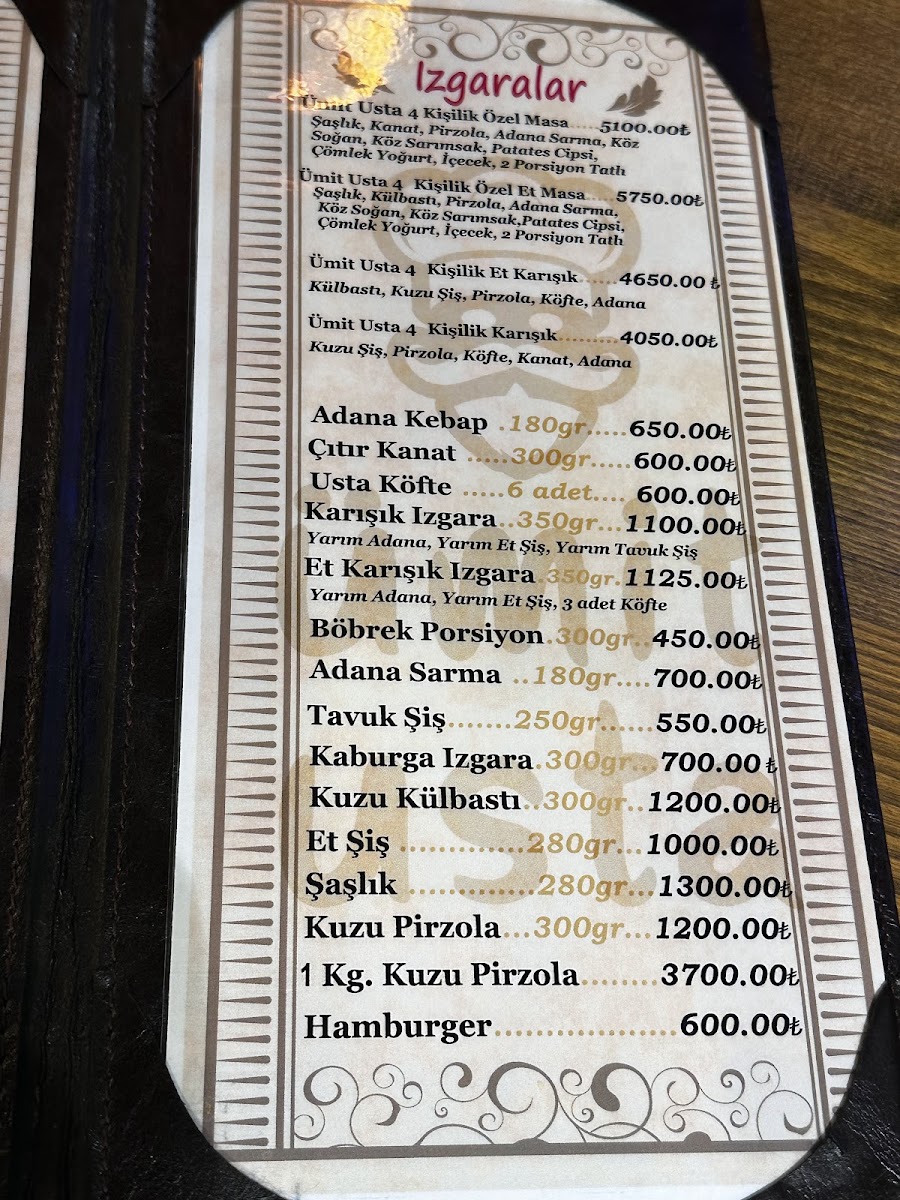 Izgaralar
Ümit Usta 4 Kişilik Özel Masa.....5100.00₺
Şaşlık, Kanat, Pirzola, Adana Sarma, Köz
Soğan, Köz Sarımsak, Patates Cipsi,
Çömlek Yoğurt, İçecek, 2 Porsiyon Tatlı
Ümit Usta 4 Kişilik Özel Et Masa.....5750.00₺
Şaşlık, Külbastı, Pirzola, Adana Sarma,
Köz Soğan, Köz Sarımsak,Patates Cipsi,
Çömlek Yoğurt, İçecek, 2 Porsiyon Tatlı
Ümit Usta 4 Kişilik Et Karışık......4650.00 ₺
Külbastı, Kuzu Şiş, Pirzola, Köfte, Adana
Ümit Usta 4 Kişilik Karışık.........4050.00₺
Kuzu Şiş, Pirzola, Köfte, Kanat, Adana
Adana Kebap .180gr.....650.00₺
Çıtır Kanat .....300gr.....600.00₺
Usta Köfte .....6 adet.... 600.00₺
Karışık Izgara..350gr...1100.00₺
Yarım Adana, Yarım Et Şiş, Yarım Tavuk Şiş
Et Karışık Izgara.350gr.1125.00₺
Yarım Adana, Yarım Et Şiş, 3 adet Köfte
Böbrek Porsiyon.300gr..450.00₺
Adana Sarma ..180gr....700.00₺
Tavuk Şiş.......250gr......550.00₺
Kaburga Izgara.300gr...700.00 ₺
Kuzu Külbastı..300gr..1200.00₺
Et Şiş ............280gr...1000.00₺
Şaşlık ............280gr...1300.00₺
Kuzu Pirzola...300gr...1200.00₺
1 Kg. Kuzu Pirzola........3700.00₺
Hamburger..................600.00₺
ümit
usta